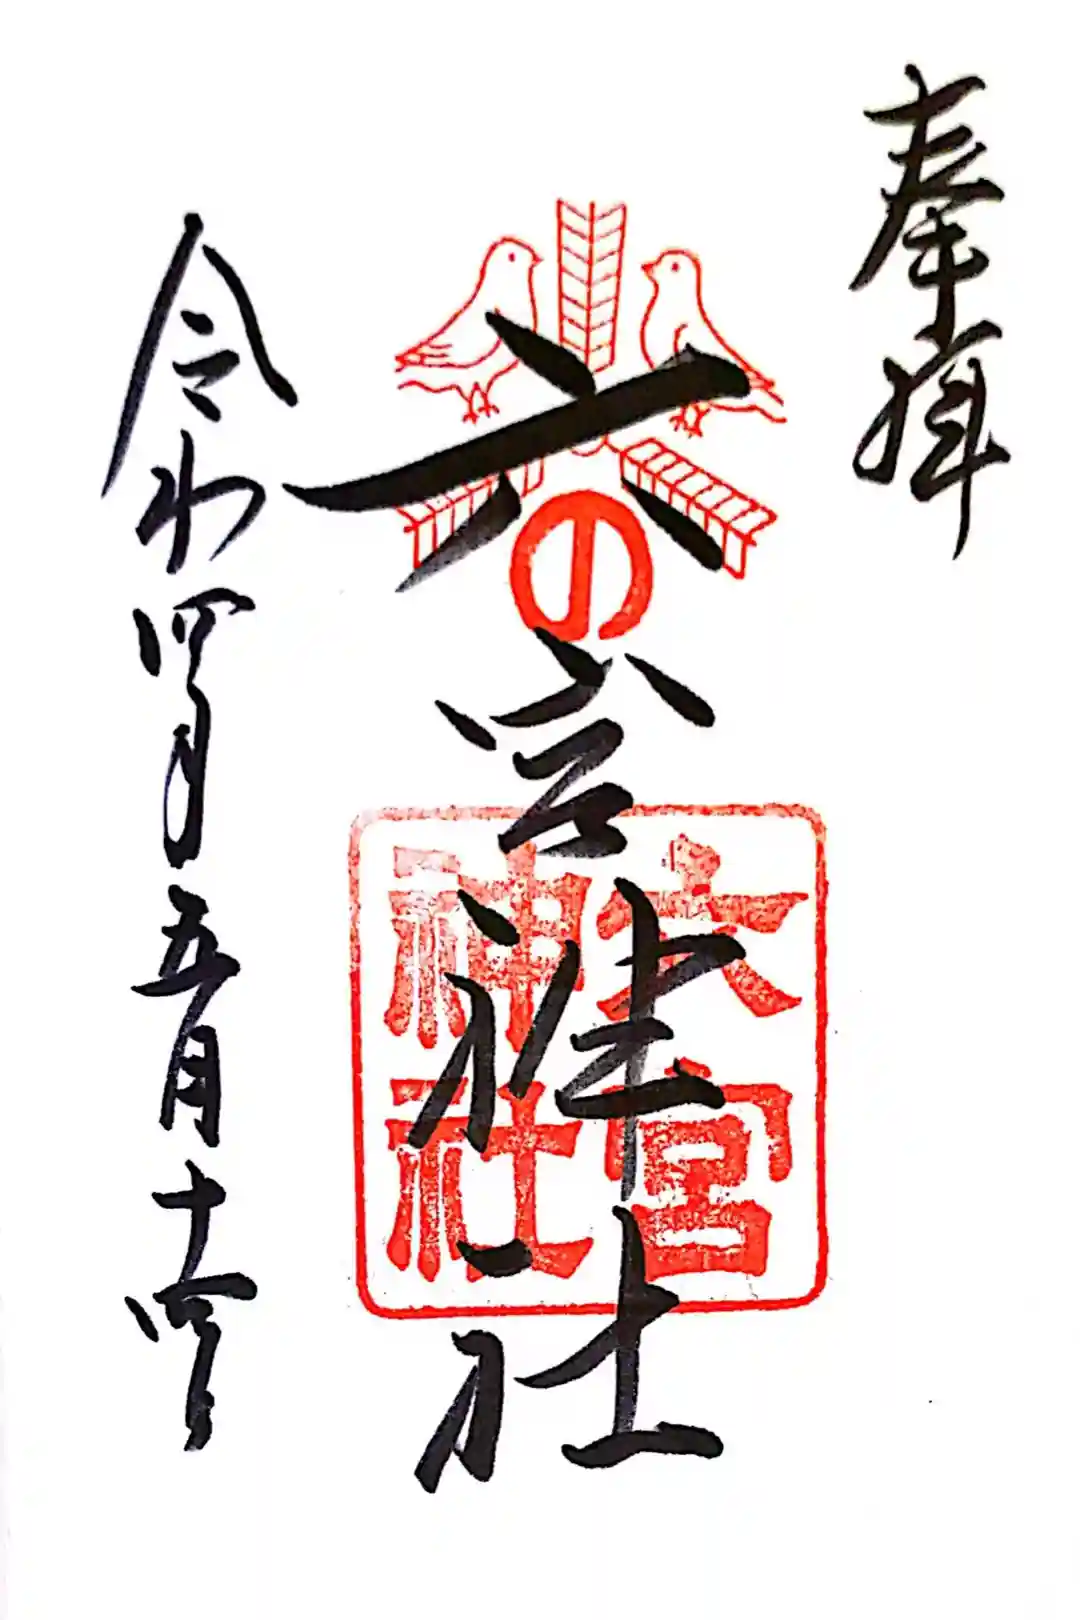 奉拝
六宮神社
の
六宮
神社
令和四年五月十四日